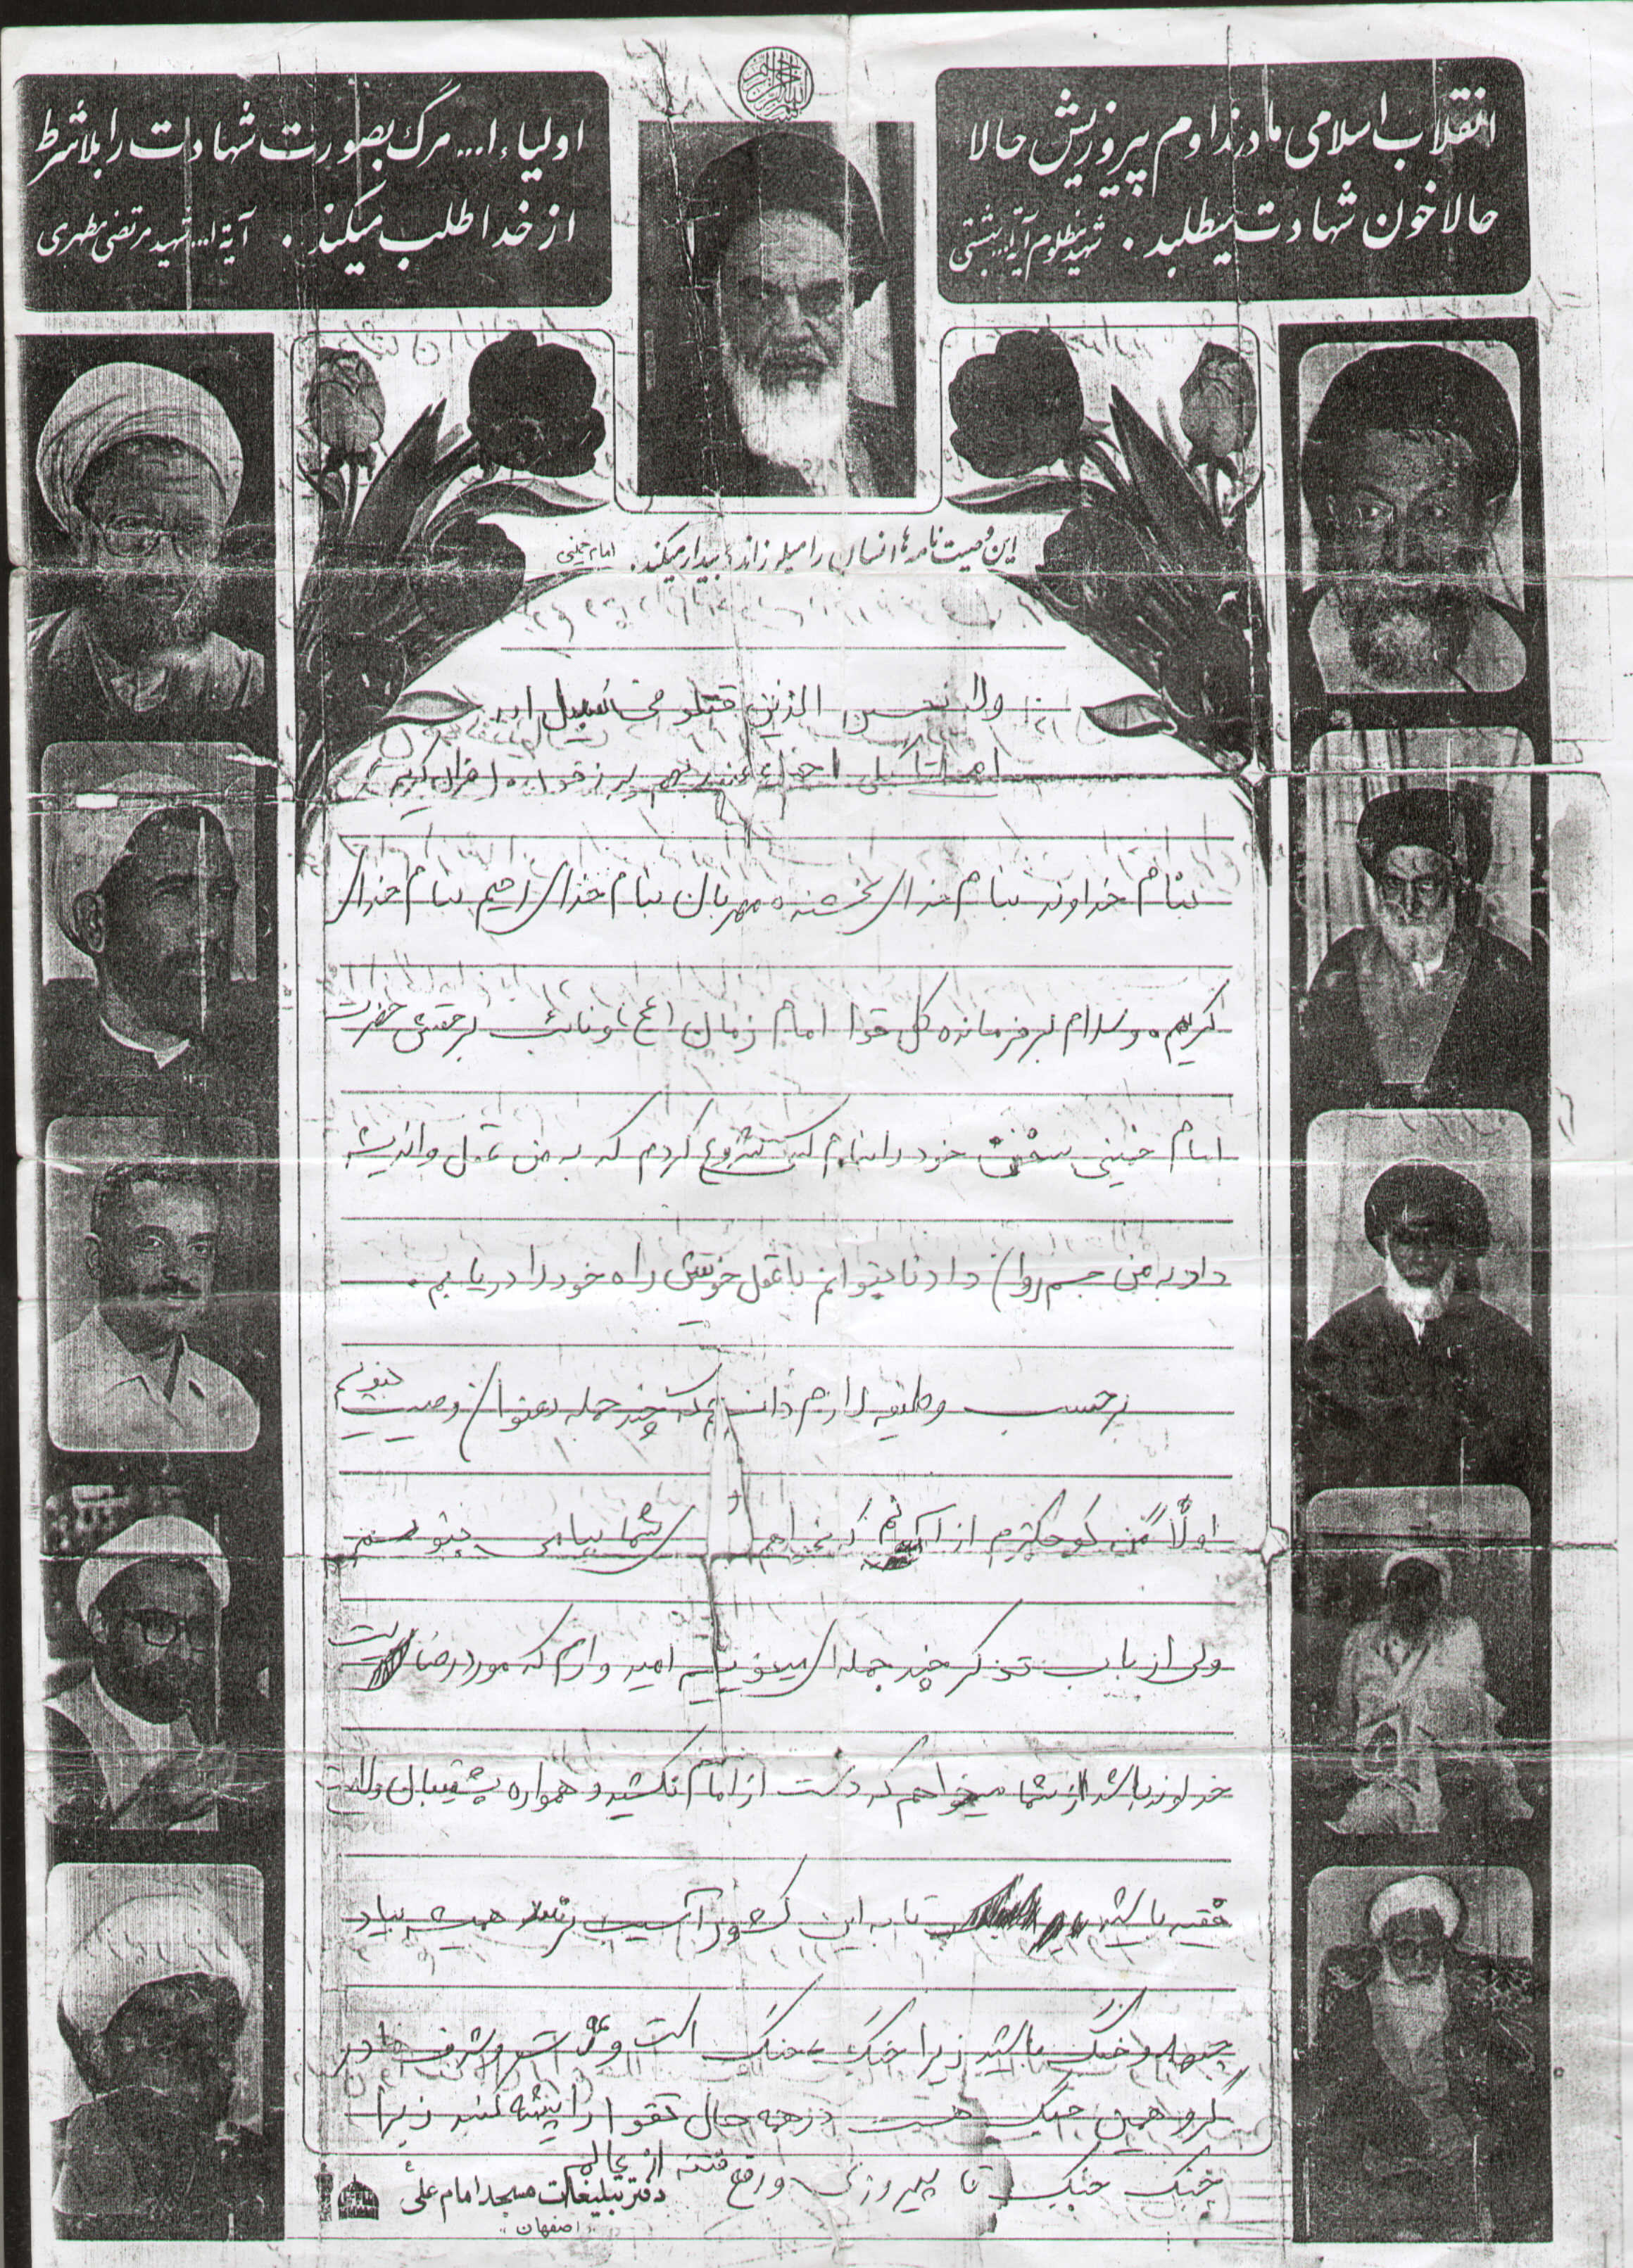 انقلاب اسلامی ما در تداوم پیروزیش حالا
حالا خون شهادت میطلبد. شهید مظلوم آیة ا... بهشتی
اولیاء ا... مرگ بصورت شهادت را بلاشرط
از خدا طلب میکند. آیة ا... شهید مرتضی مطهری
این وصیت نامه ها انسان را میلرزاند و بیدار میکند. امام خمینی
ولا تحسبن الذین قتلو فی سبیل الله
امواتا بلی احیاء عند ربهم یرزقون قرآن کریم
بنام خداوند بنام خدای بخشنده مهربان بنام خدای رحیم بنام خدای
کریم و سلام بر فرمانده کل قوا امام زمان (عج) و نائب برحقش حضرت
امام خمینی سخن خود را بنام کسی شروع کردم که به من عقل و اندیشه
داد به من جسم روان داد تا بتوانم با عقل خویش راه خود را دریابم.
برحسب وظیفه لازم دانستم که چند جمله بعنوان وصیت بنویسم
اولاً من کوچکترم از آنم که بخواهم برای شما پیامی بنویسم
ولی از باب تذکر چند جمله ای مینویسم امید وارم که مورد رضایت
خداوند باشد از شما میخواهم که دست از امام نکشید و همواره پشتیبان ولایت
فقیه باشید تا به این کشور آسیب نرسد همیشه بیاد
جبهه و جنگ باشید زیرا جنگ جنگ است و عزت و شرف ما در
گرو همین جنگ هست در همه حال تقوا را پیشه کنید زیرا
جنگ جنگ تا پیروزی و رفع فتنه از عالم
دفتر تبلیغات مسجد امام علی
اصفهان